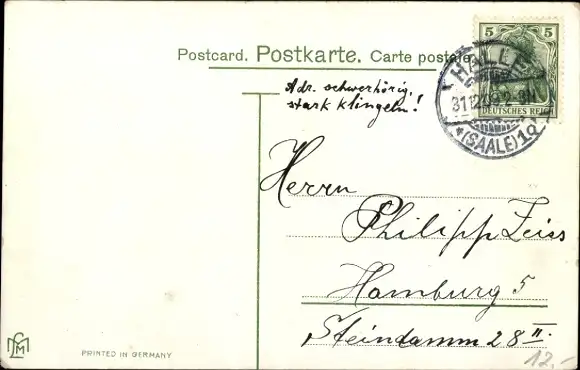 Postcard. Postkarte. Carte postale.
5 5
DEUTSCHES REICH
HALLE
31.12.09.2-3N.
*(SAALE)1q
Adr. schwerhörig,
stark klingeln!
Herrn
Philipp Zeiss
Hamburg 5
Steindamm 28 II.
PRINTED IN GERMANY
12.-